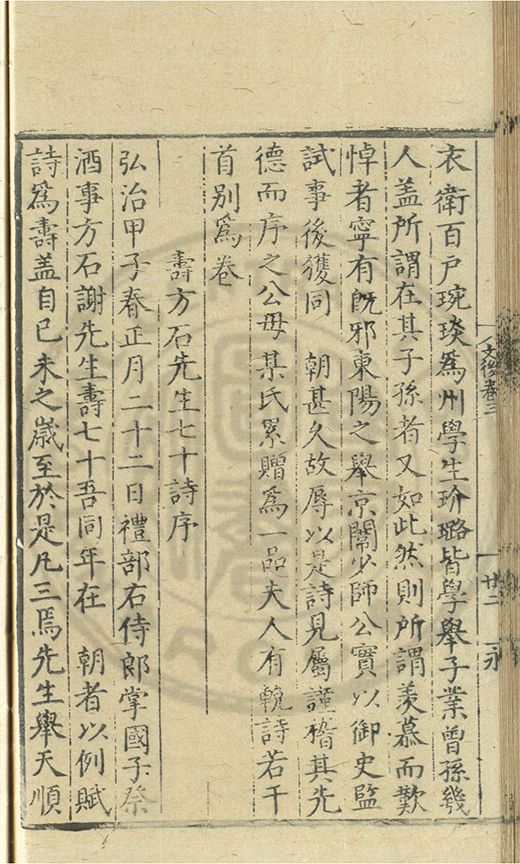 衣衛百户琬琰爲州學生玠璐皆學舉子業曾孫幾
人盖所謂在其子孫者又如此然則所謂羡慕而歎
悼者寧有旣邪東陽之舉京闈少師公實以御史監
試事後獲同　朝甚久故辱以是詩見屬謹稽其先
德而序之公毋某氏累贈爲一品夫人有輓詩若干
首別爲卷
壽方石先生七十詩序
弘治甲子春正月二十二日禮部右侍郎掌國子祭
酒事方石謝先生壽七十吾同年在　朝者以例賦
詩爲壽盖自已未之歲至於是凡三焉先生舉天順
文後卷三
廿二
永